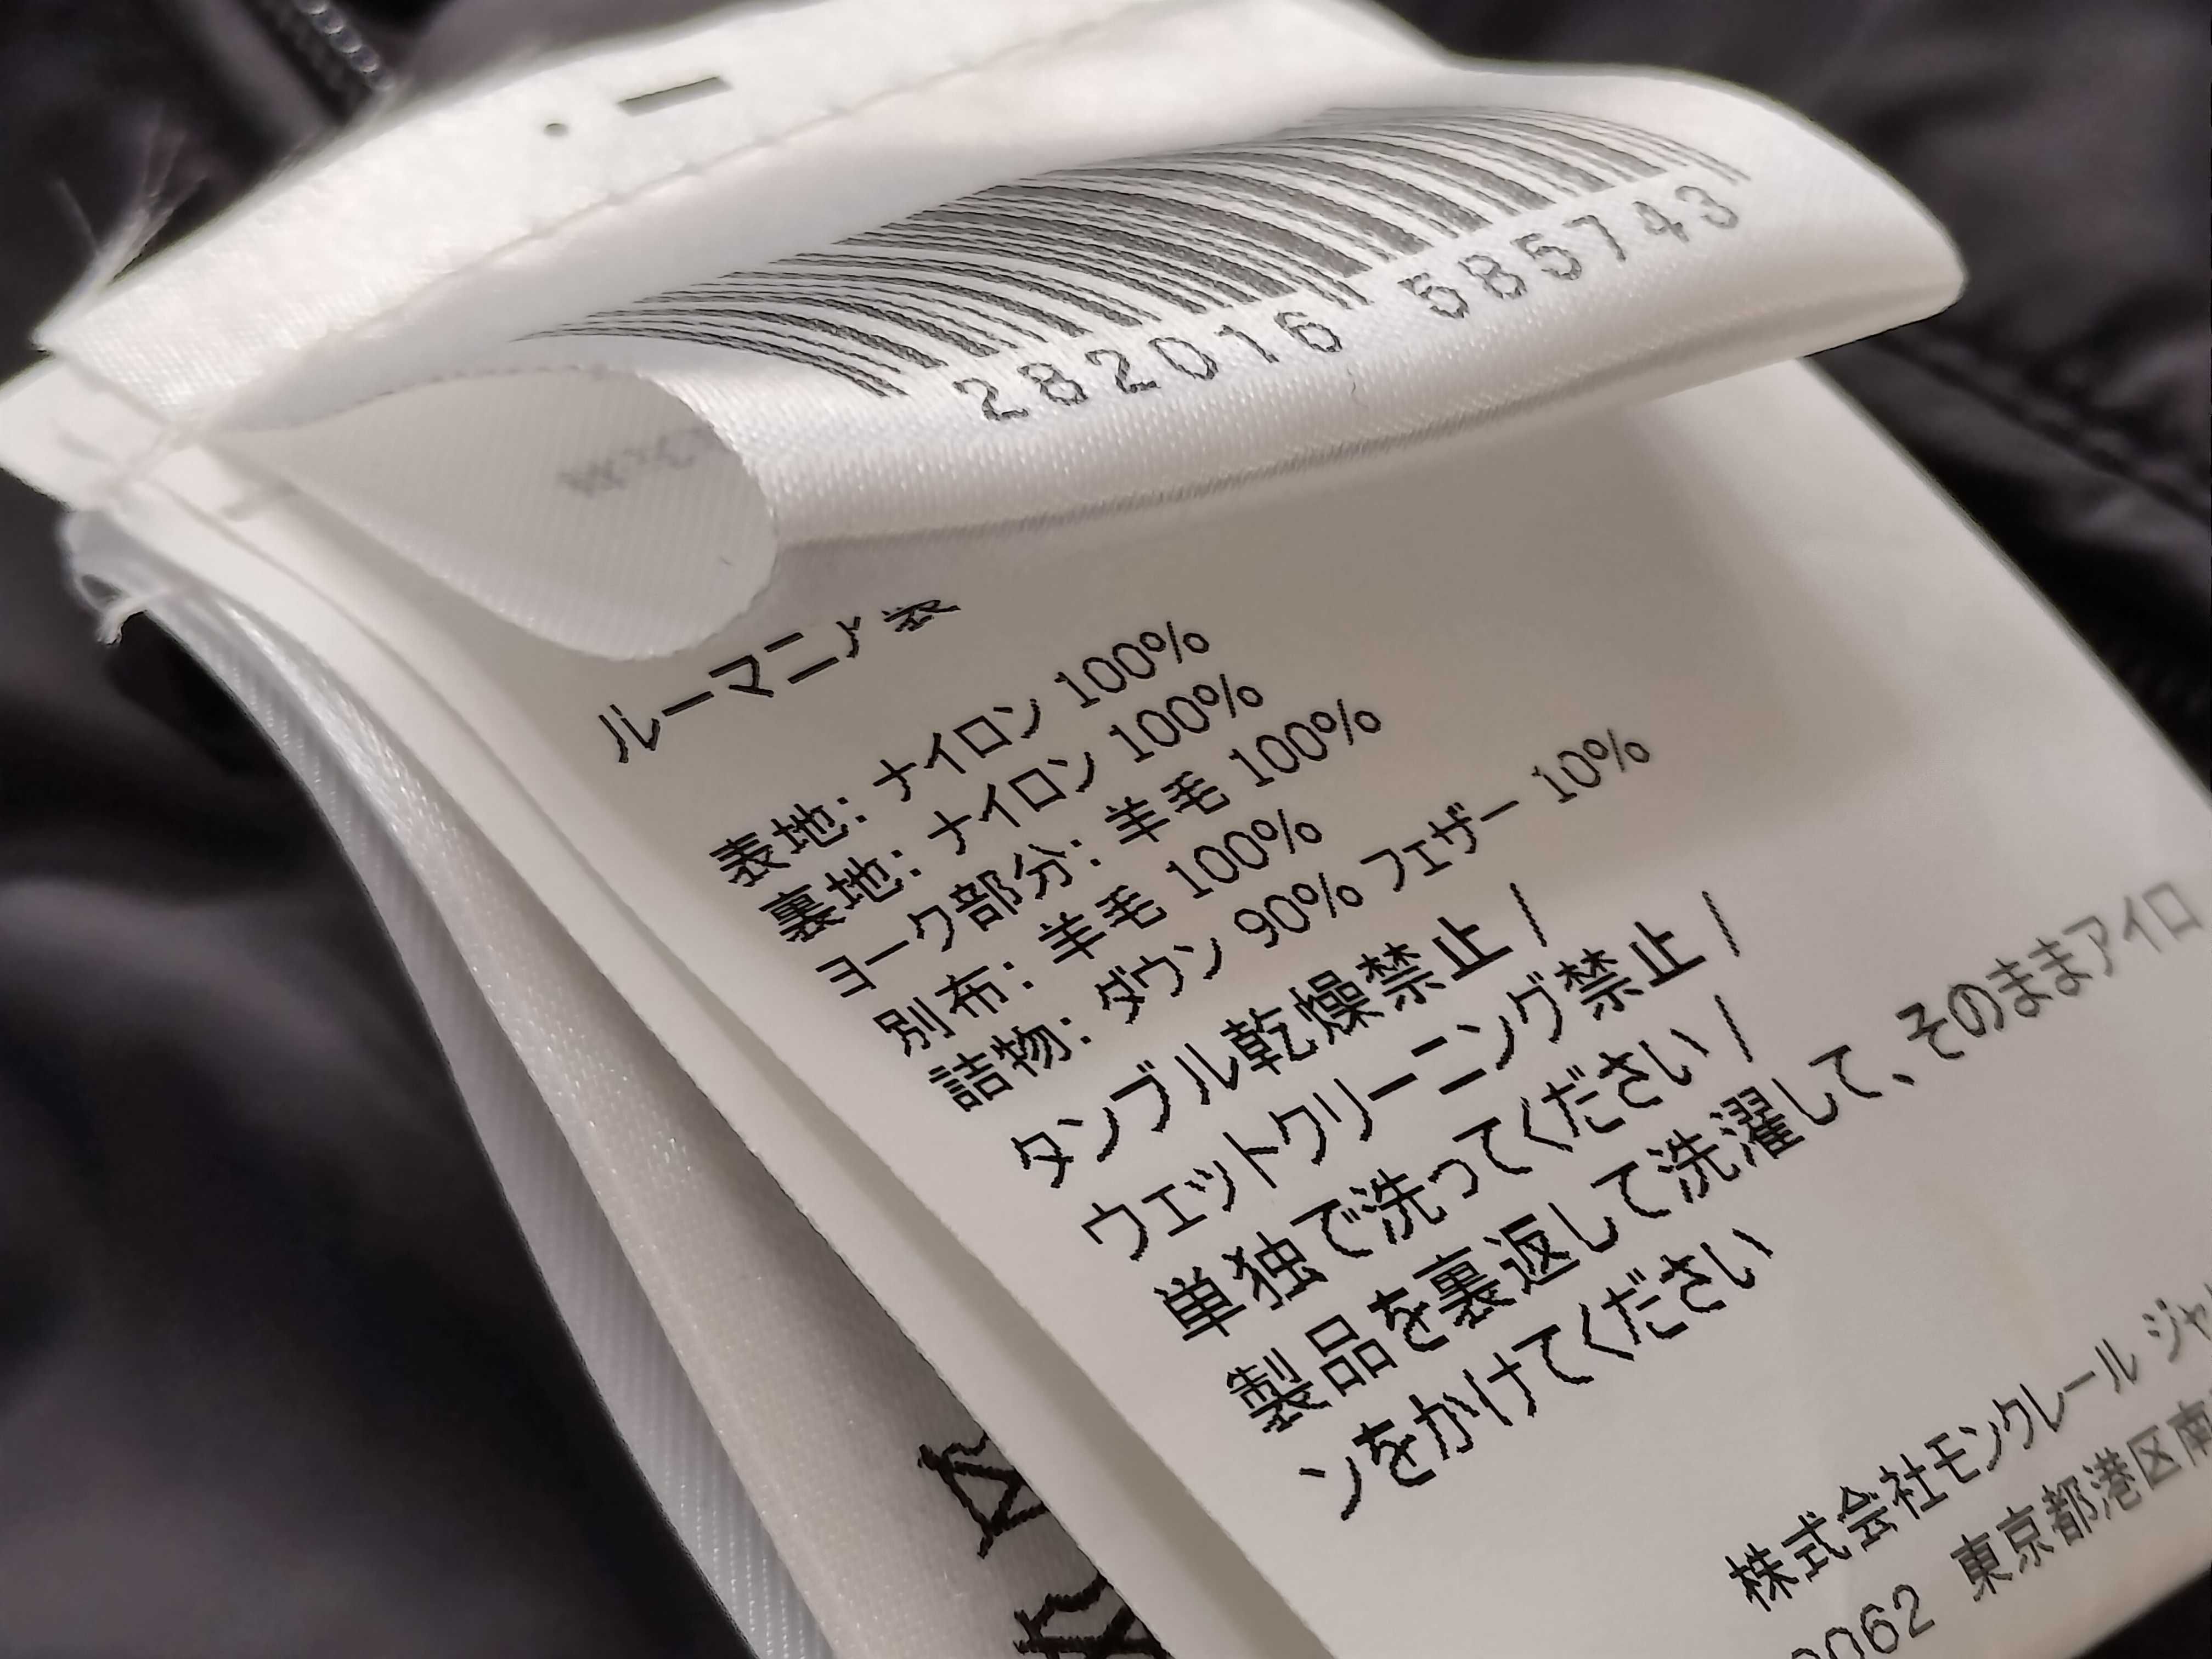 282016 585743
ルーマニア製
表地: ナイロン 100%
裏地: ナイロン 100%
ヨーク部分: 羊毛 100%
別布: 羊毛 100%
詰物: ダウン 90% フェザー 10%
タンブル乾燥禁止 /
ウェットクリーニング禁止 /
単独で洗ってください /
製品を裏返して洗濯して、そのままアイロ
ンをかけてください
株式会社モンクレール ジャ
0062 東京都港区南